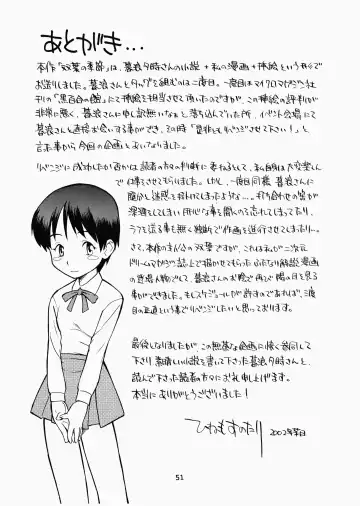 あとがき...
本作「双葉の季節」は、暮浪夕時さんの小説+私の漫画+挿絵という形で
お送りしました。暮浪さんとタッグを組むのは二度目。一度目はマイクロマガジン社
刊の「黒百合の館」にて挿絵を担当させて頂いたのですが、この挿絵の評判が
非常に悪く、暮浪さんに申し訳無いなぁと落ち込んでいた所、イベント会場にて
暮浪さんと直接お会いする事ができ、その時「是非もリベンジさせて下さい!」と
言った事から今回の企画と
リベンジに成功したか否かは読者の方々の判断に委ねるとして、私自身は大変楽しん
で仕事させてもらいました。けど、一度目同様、暮浪さんに
随分と迷惑を掛けてしまったような…。打ち合わせの
してしまい肝心な事を聞くのを忘れてしまったり、
うっすら事も無く独断で作画を進行させてしまったり…。
さて、本作の主人公の双葉ですが、これは私が二次元
ドリームマガジンの誌上で描かせてもらったふたなり解説漫画
の登場人物でして、暮浪さんのお陰で再び陽の目を見る
事ができました。もしスケジュールが許すのであれば、三度
目の正直という事でリベンジしたいと思っております。
最後になりましたが、この無茶な企画に快く賛同して
下さり素晴しい小説を書いて下さった暮浪夕時さんと、
読んで下さった読者の方々にお礼申し上げます。
本当にありがとうございました!
ひねもすのたり
2002年某日
51